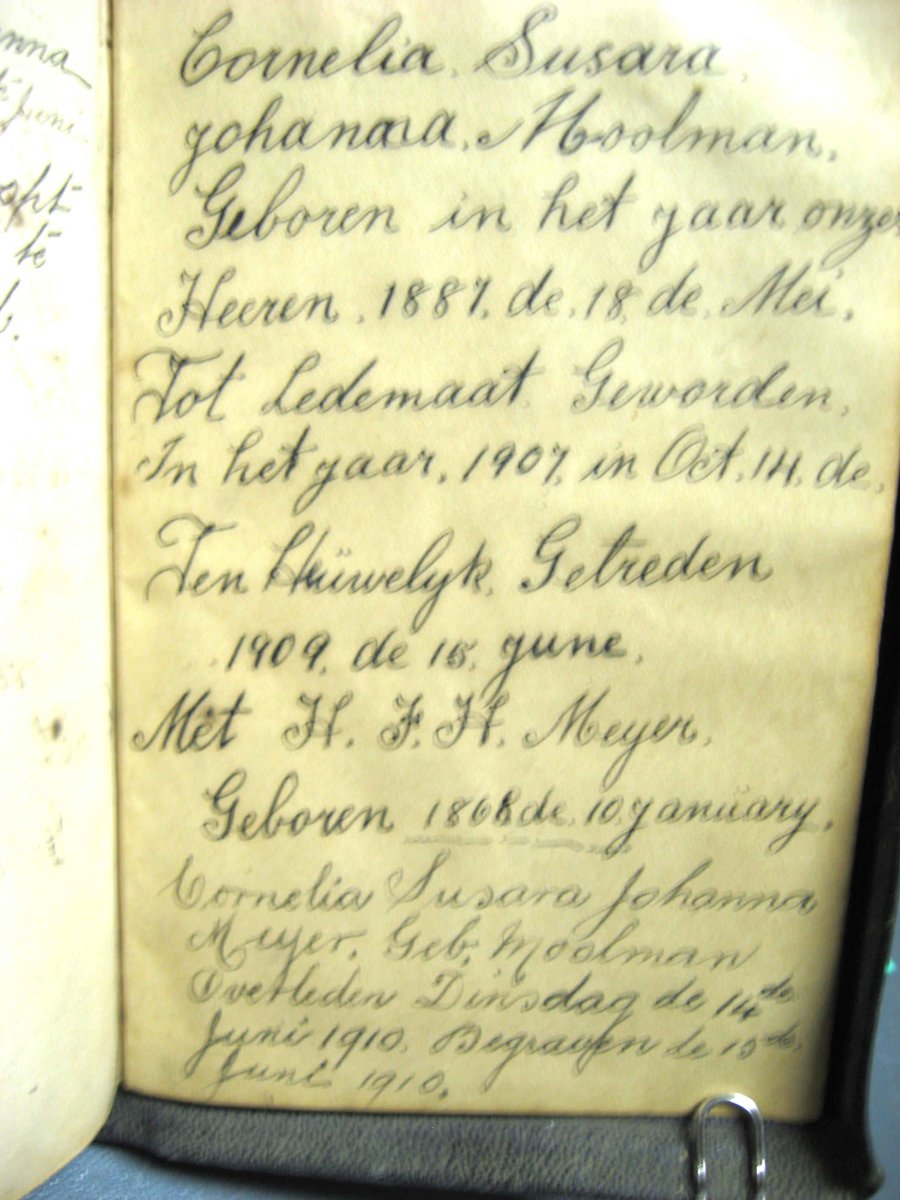 nna
Juni
te
Cornelia. Susara
Johanna. Moolman.
Geboren in het jaar onzer
Heeren. 1887. de. 18 de. Mei.
Tot Ledemaat Geworden.
In het jaar. 1907. in Oct. 14. de.
Ten Hüwelyk. Getreden
1909. de 15. june.
Met H. F. H. Meyer.
Geboren 1868 de. 10. january.
Cornelia Susara Johanna
Meyer. Geb. Moolman
Overleden Dinsdag de 14de
Juni 1910. Begraven de 15de
Juni 1910.